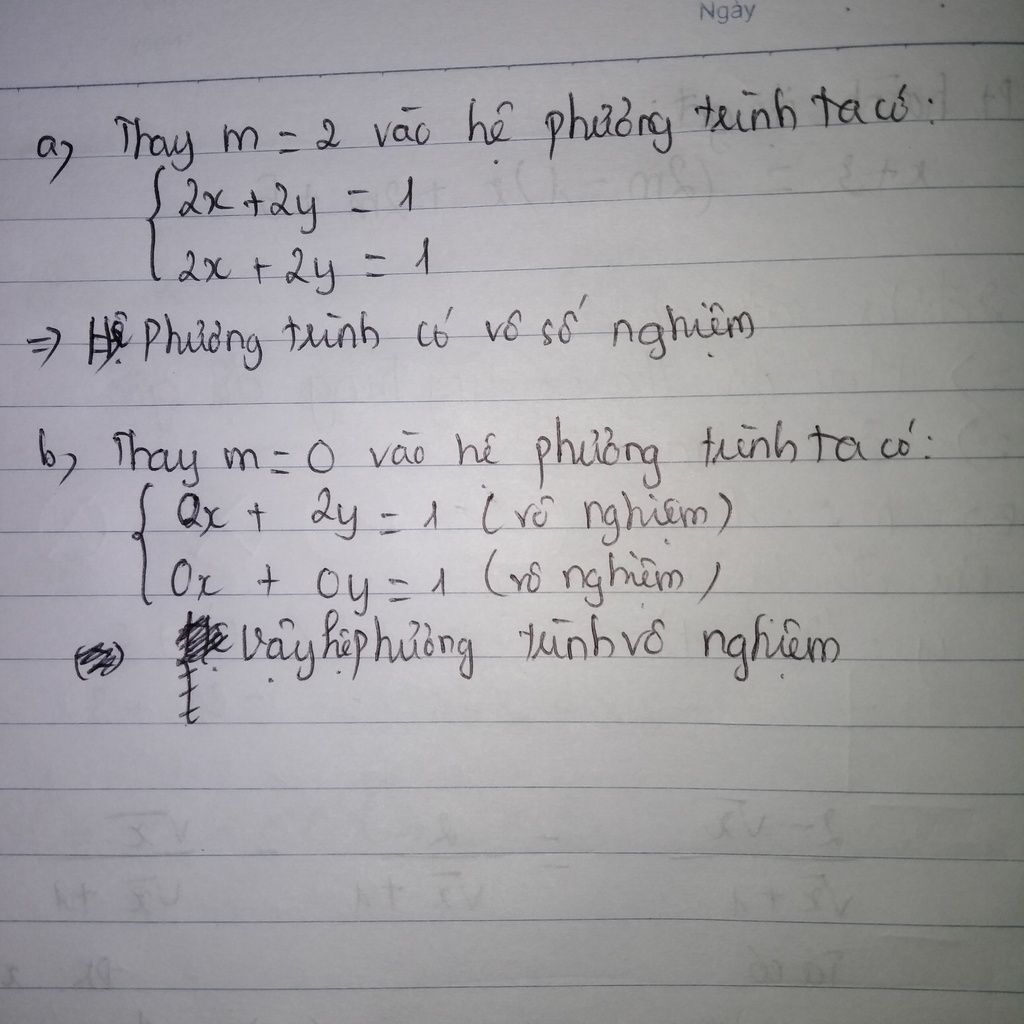 Ngày
a) Thay m = 2 vào hệ phương trình ta có:
2x + 2y = 1
2x + 2y = 1
=> Hệ phương trình có vô số nghiệm
b) Thay m = 0 vào hệ phương trình ta có:
0x + 2y = 1 (vô nghiệm)
0x + 0y = 1 (vô nghiệm)
Vậy hệ phương trình vô nghiệm